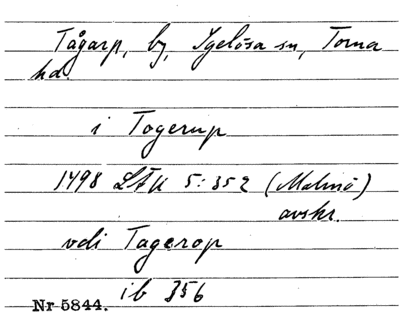 Tågarp, by, Igelösa sn, Torna
hd.
i Togerup
1498 LÄU 5:352 (Malmö)
avskr.
vdi Tagerop
ib 356
Nr 5844.